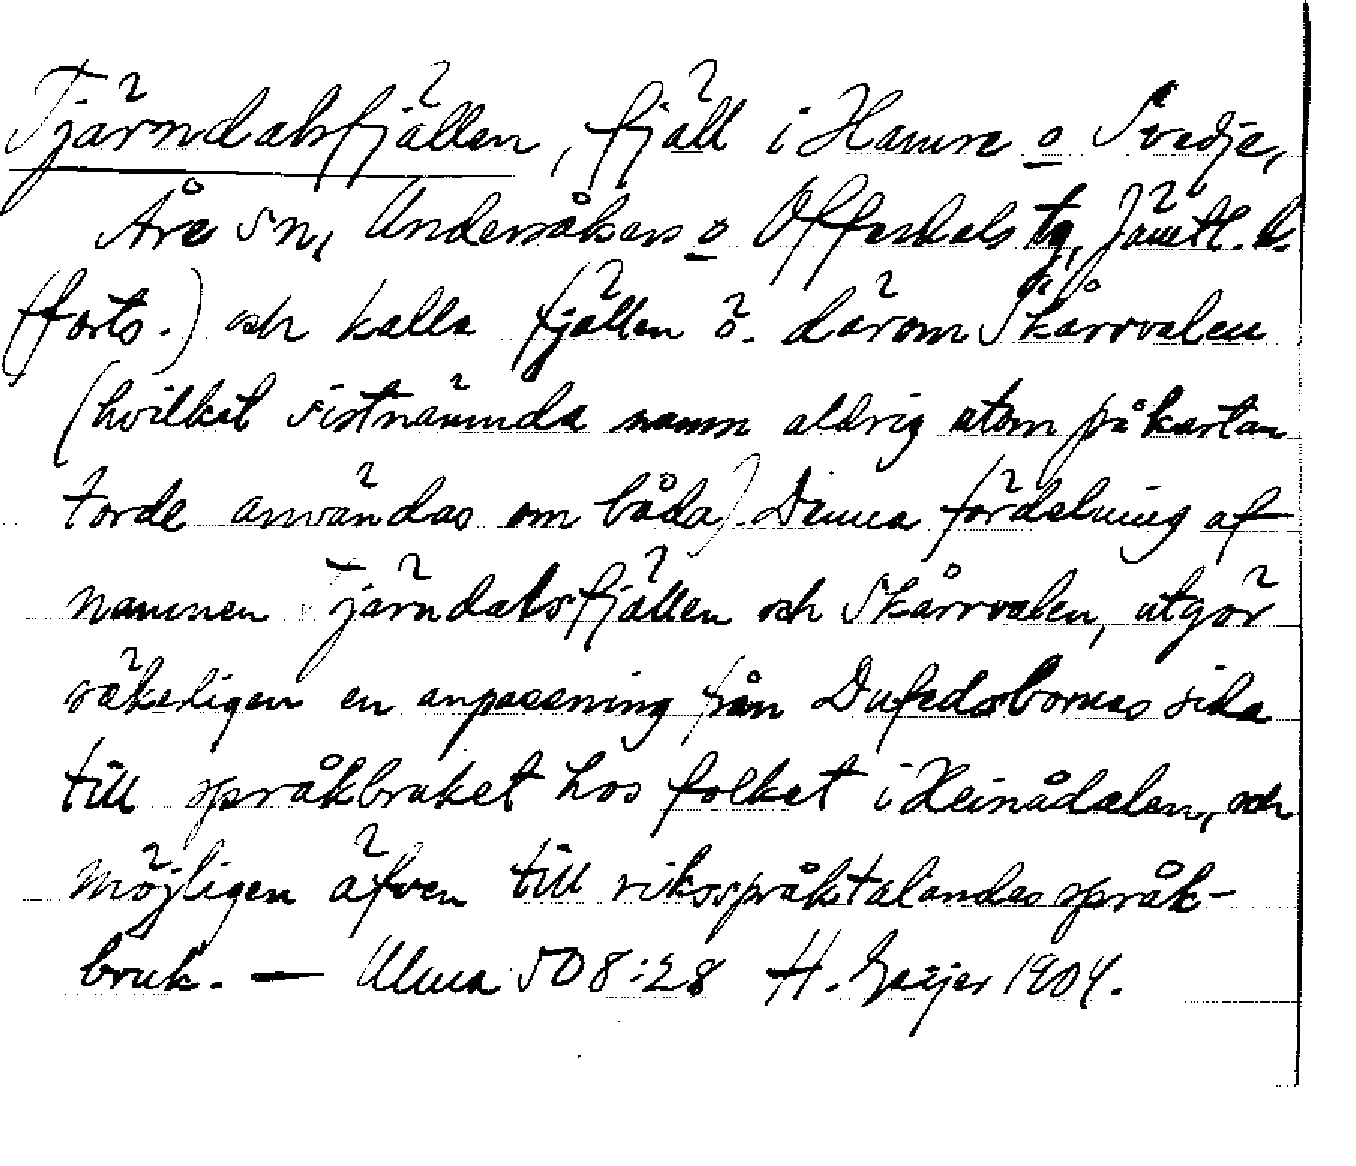 Tjärndalsfjällen, fjäll i Hamre o Svedje,
Åre sn, Undersåkers o Offerdals tg, Jämtl. l.
(forts.) och kalla fjällen ö. därom Skårrvalen
(hvilket sistnämnda namn aldrig utom på kartan
torde användas om båda). Denna fördelning af
namnen Tjärndalsfjällen och Skårrvalen, utgör
säkerligen en anpassning från Dufedsbornas sida
till språkbruket hos folket i Heinådalen, och
möjligen äfven till riksspråkstalandes språk-
bruk. — Ulma 508:28 H. Geijer 1904.